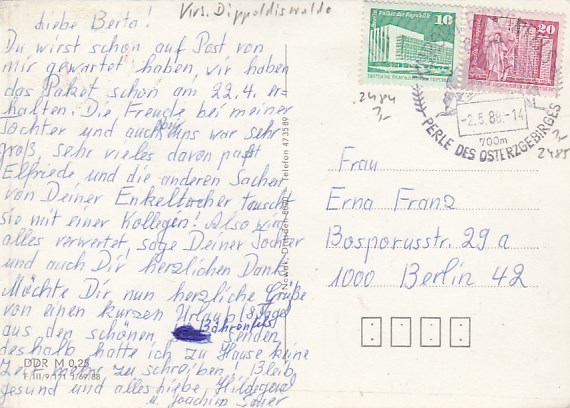 Krs. Dippoldiswalde
Liebe Berta!
Du wirst schon auf Post von
mir gewartet haben, wir haben
das Paket schon am 22.4. er-
halten. Die Freude bei meiner
Tochter und auch bei uns war sehr
groß, sehr vieles davon paßt
Elfriede und die anderen Sachen
von Deiner Enkeltochter tauscht
sie mit einer Kollegin! Also wird
alles verwertet, sage Deiner Tochter
und auch Dir herzlichen Dank
Möchte Dir nun herzliche Grüße
von einen kurzen Urlaub (8 Tage)
aus den schönen Bährenfels senden,
deshalb hatte ich zu Hause keine
Zeit mehr zu schreiben! Bleib
gesund und alles liebe Hildegard
u. Joachim
DDR M 0,25
Telefon 473589
10
20
2484
2485
-2.5.88.-14
700m
PERLE DES OSTERZGEBIRGES
Frau
Erna Franz
Bosporusstr. 29 a
1000 Berlin 42